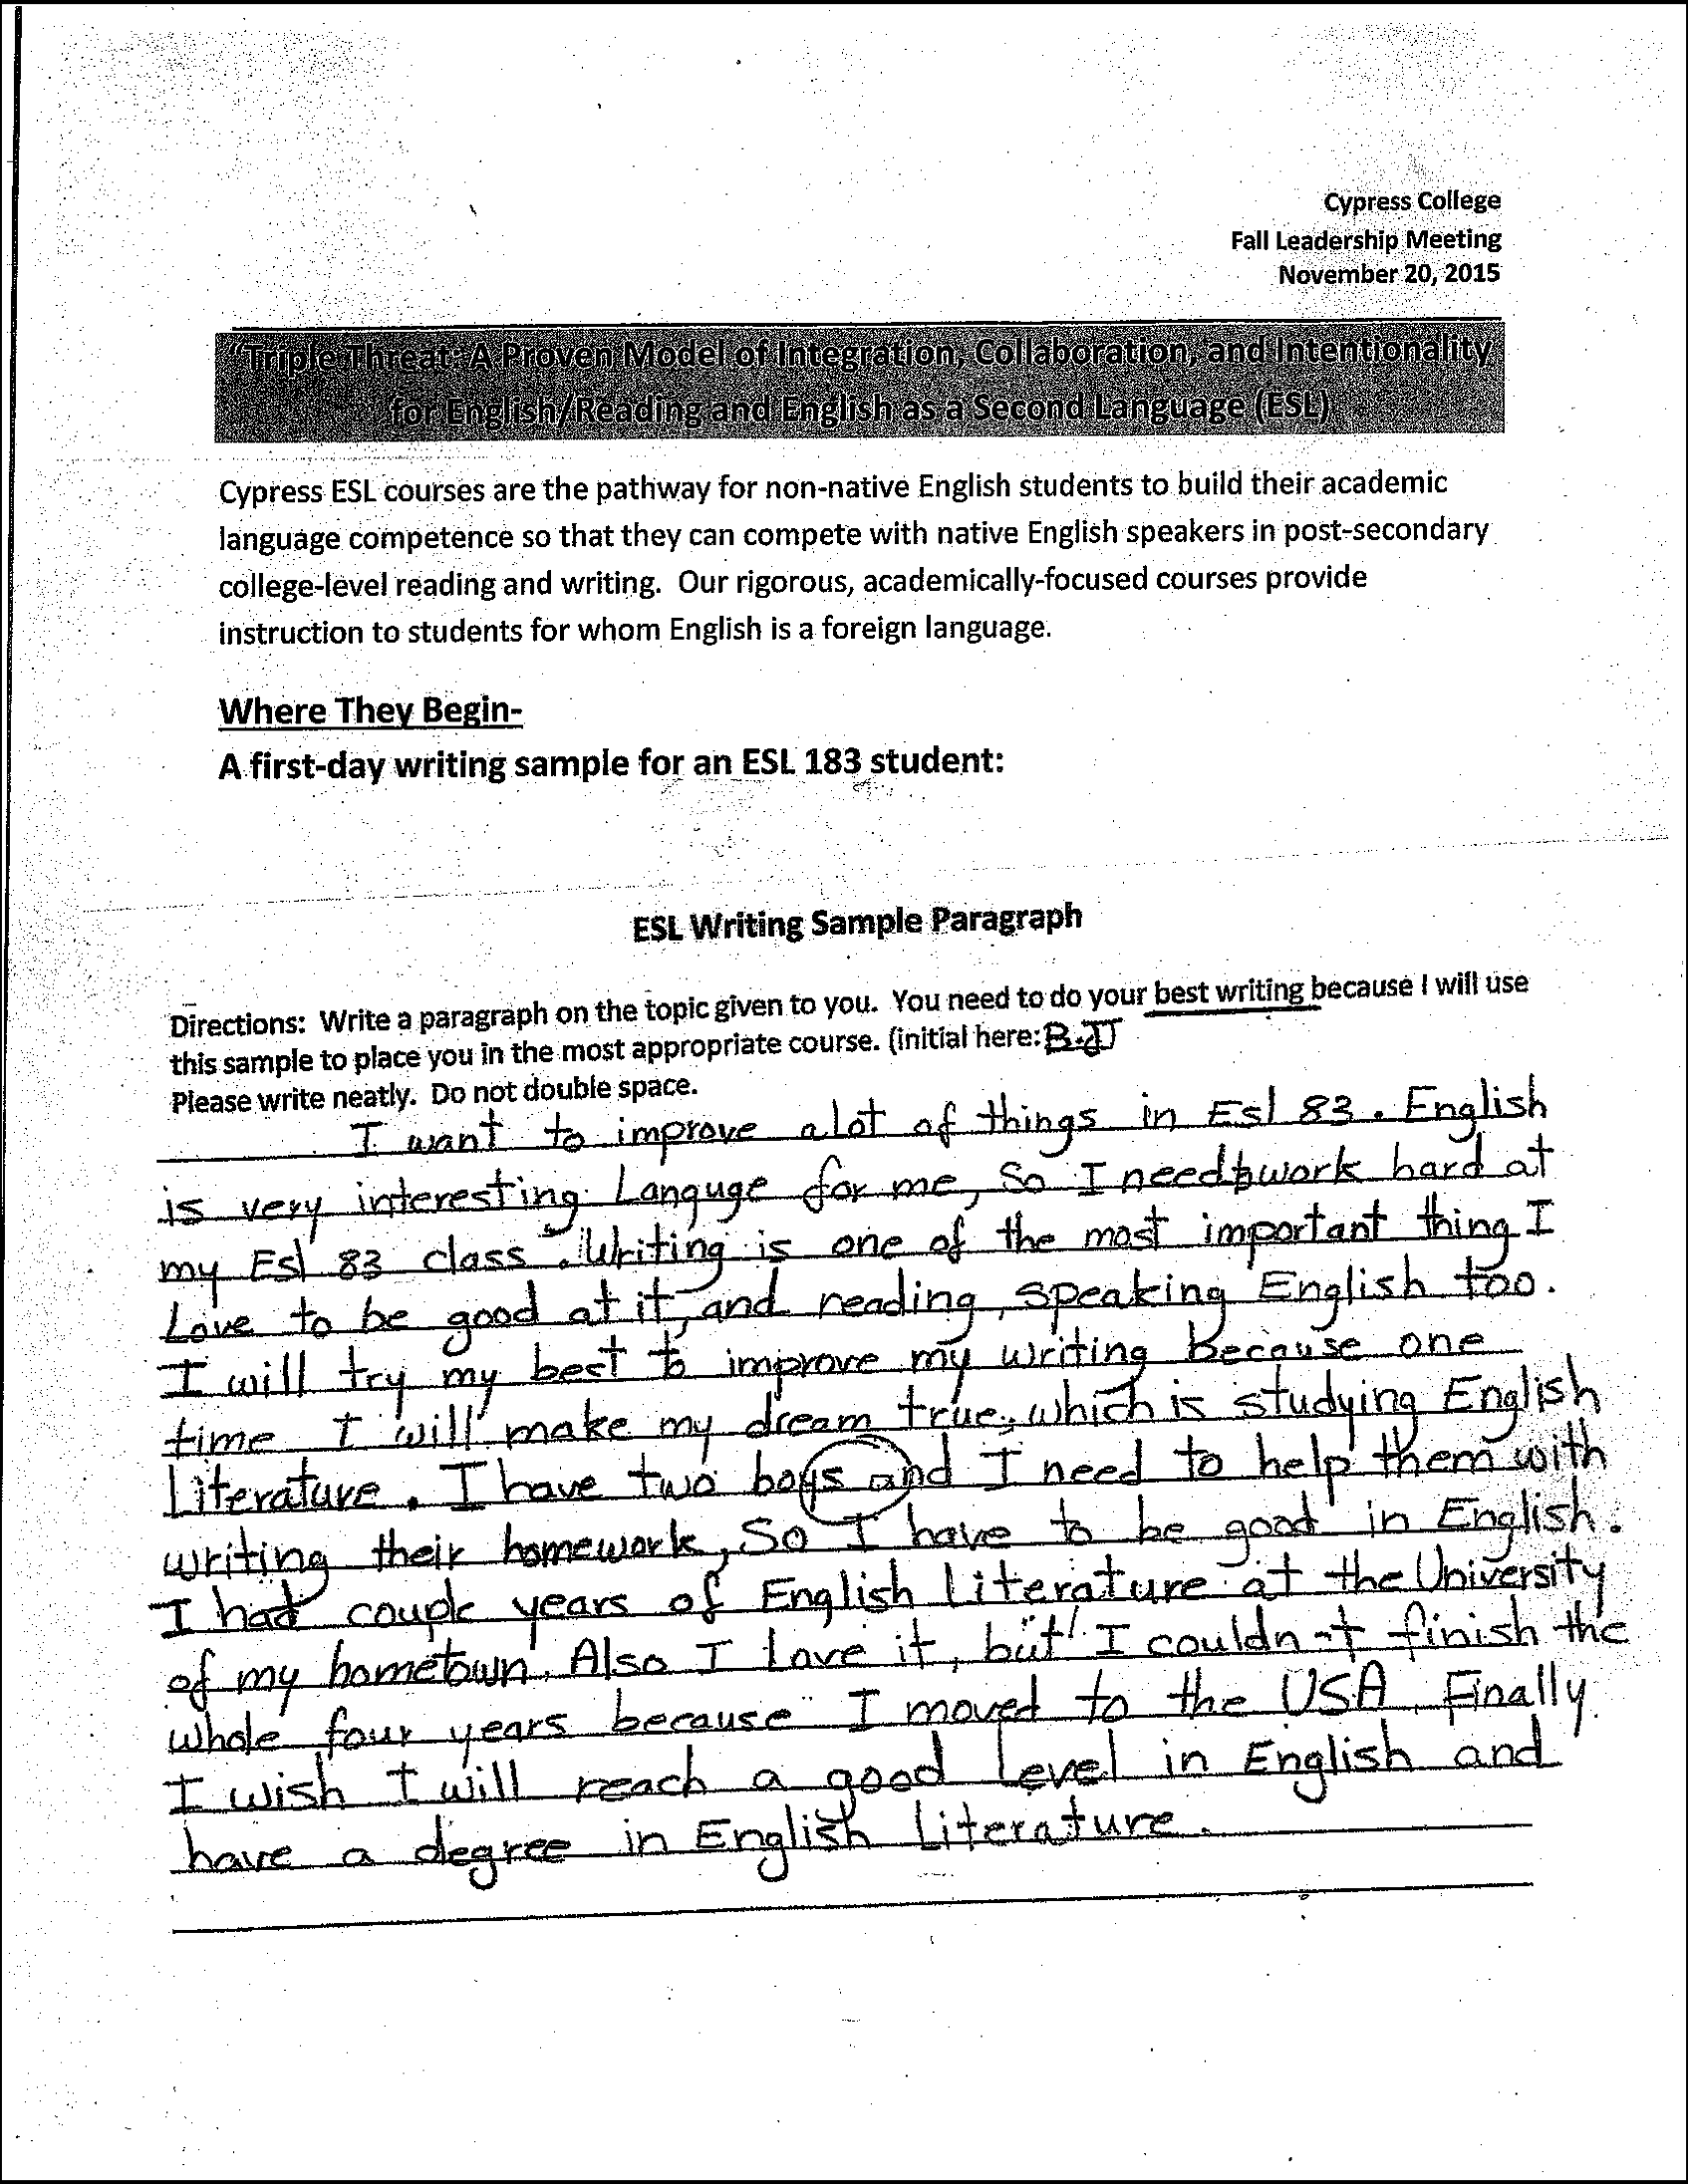 Cypress College
Fall Leadership Meeting
November 20, 2015
"Triple Threat: A Proven Model of Integration, Collaboration, and Intentionality
for English/Reading and English as a Second Language (ESL)
Cypress ESL courses are the pathway for non-native English students to build their academic
language competence so that they can compete with native English speakers in post-secondary
college-level reading and writing. Our rigorous, academically-focused courses provide
instruction to students for whom English is a foreign language.
Where They Begin-
A first-day writing sample for an ESL 183 student:
ESL Writing Sample Paragraph
Directions: Write a paragraph on the topic given to you. You need to do your best writing because I will use
this sample to place you in the most appropriate course. (initial here: B.JJ
Please write neatly. Do not double space.
I want to improve alot of things in Esl 83. English
is very interesting Languge for me, So I need to work hard at
my Esl 83 class. Writing is one of the most important thing I
Love to be good at it, and reading, speaking English too.
I will try my best to improve my writing Because one
time I will make my dream true, which is studying English
Literature. I have two boys and I need to help them with
writing their homework, So I have to be good in English.
I had couple years of English Literature at the University
of my hometown. Also I Love it, but I couldn't finish the
whole four years because I moved to the USA. Finally
I wish I will reach a good Level in English and
have a degree in English Literature.